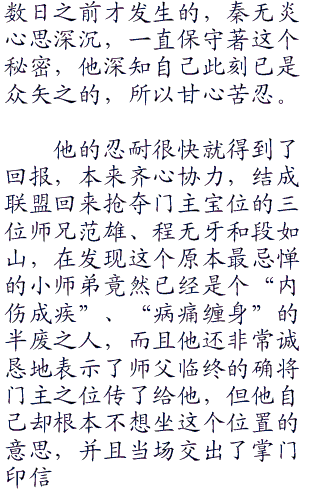 数日之前才发生的，秦无炎
心思深沉，一直保守著这个
秘密，他深知自己此刻已是
众矢之的，所以甘心苦忍。
他的忍耐很快就得到了
回报，本来齐心协力，结成
联盟回来抢夺门主宝位的三
位师兄范雄、程无牙和段如
山，在发现这个原本最忌惮
的小师弟竟然已经是个“内
伤成疾”、“病痛缠身”的
半废之人，而且他还非常诚
恳地表示了师父临终的确将
门主之位传了给他，但他自
己却根本不想坐这个位置的
意思，并且当场交出了掌门
印信